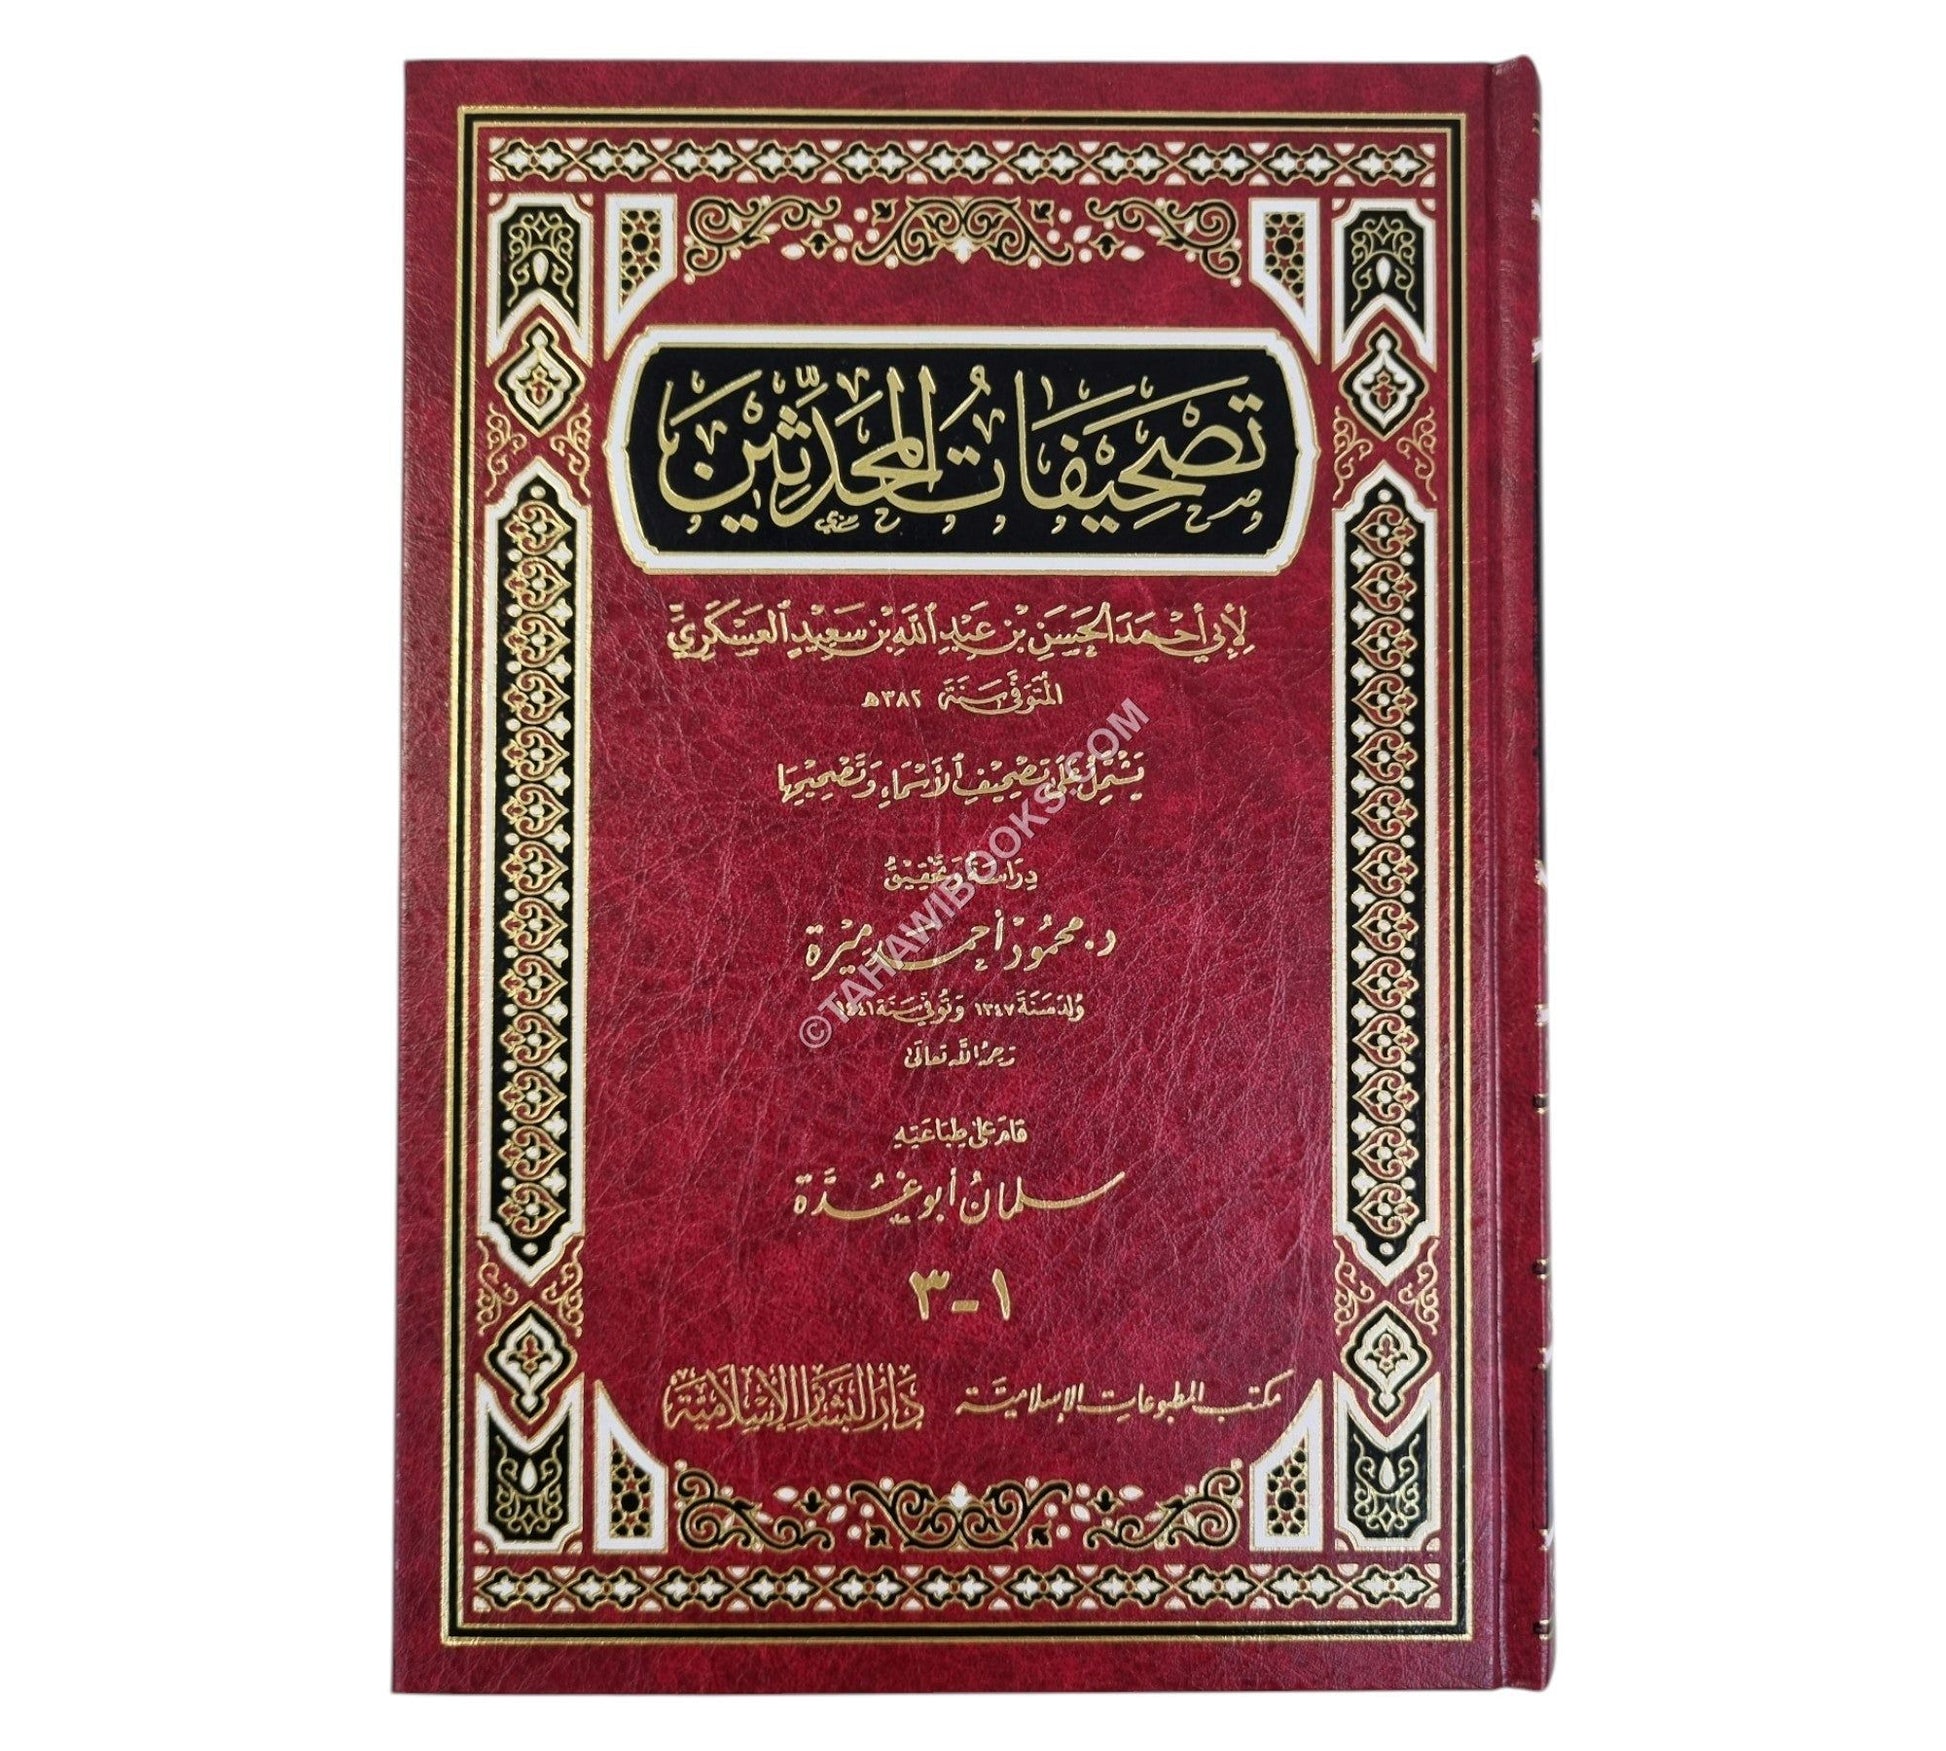 تَصْحِيفَاتُ المُحَدِّثِينَ
لِأَبِي أَحْمَدَ الحَسَنِ بْنِ عَبْدِ اللَّهِ بْنِ سَعِيْدٍ العَسْكَرِيِّ
المُتَوَفَّى سَنَةَ ٣٨٢هـ
يَشْتَمِلُ عَلَى تَصْحِيْفِ الأَسْمَاءِ وَتَصْحِيْحِهَا
دِرَاسَةُ وَتَحْقِيْقُ
د. محمُود أحمَد ميْرة
وُلدَ سَنَةَ ١٣٤٧ وَتُوُفِّيَ سَنَة ١٤٤١
رَحِمَهُ اللَّه تعَالَىٰ
قَامَ عَلىٰ طِبَاعَتِهِ
سلمانُ أبو غُدَّة
١-٣
مكتب المطبوعات الإسلاميَّة دَارُ البَشَائِرِ الإِسْلَامِيَّة
© TAHAWIBOOKS.COM